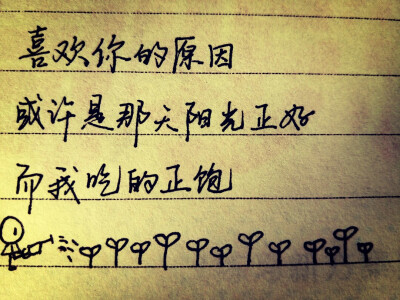 喜欢你的原因
或许是那天阳光正好
而我吃的正饱